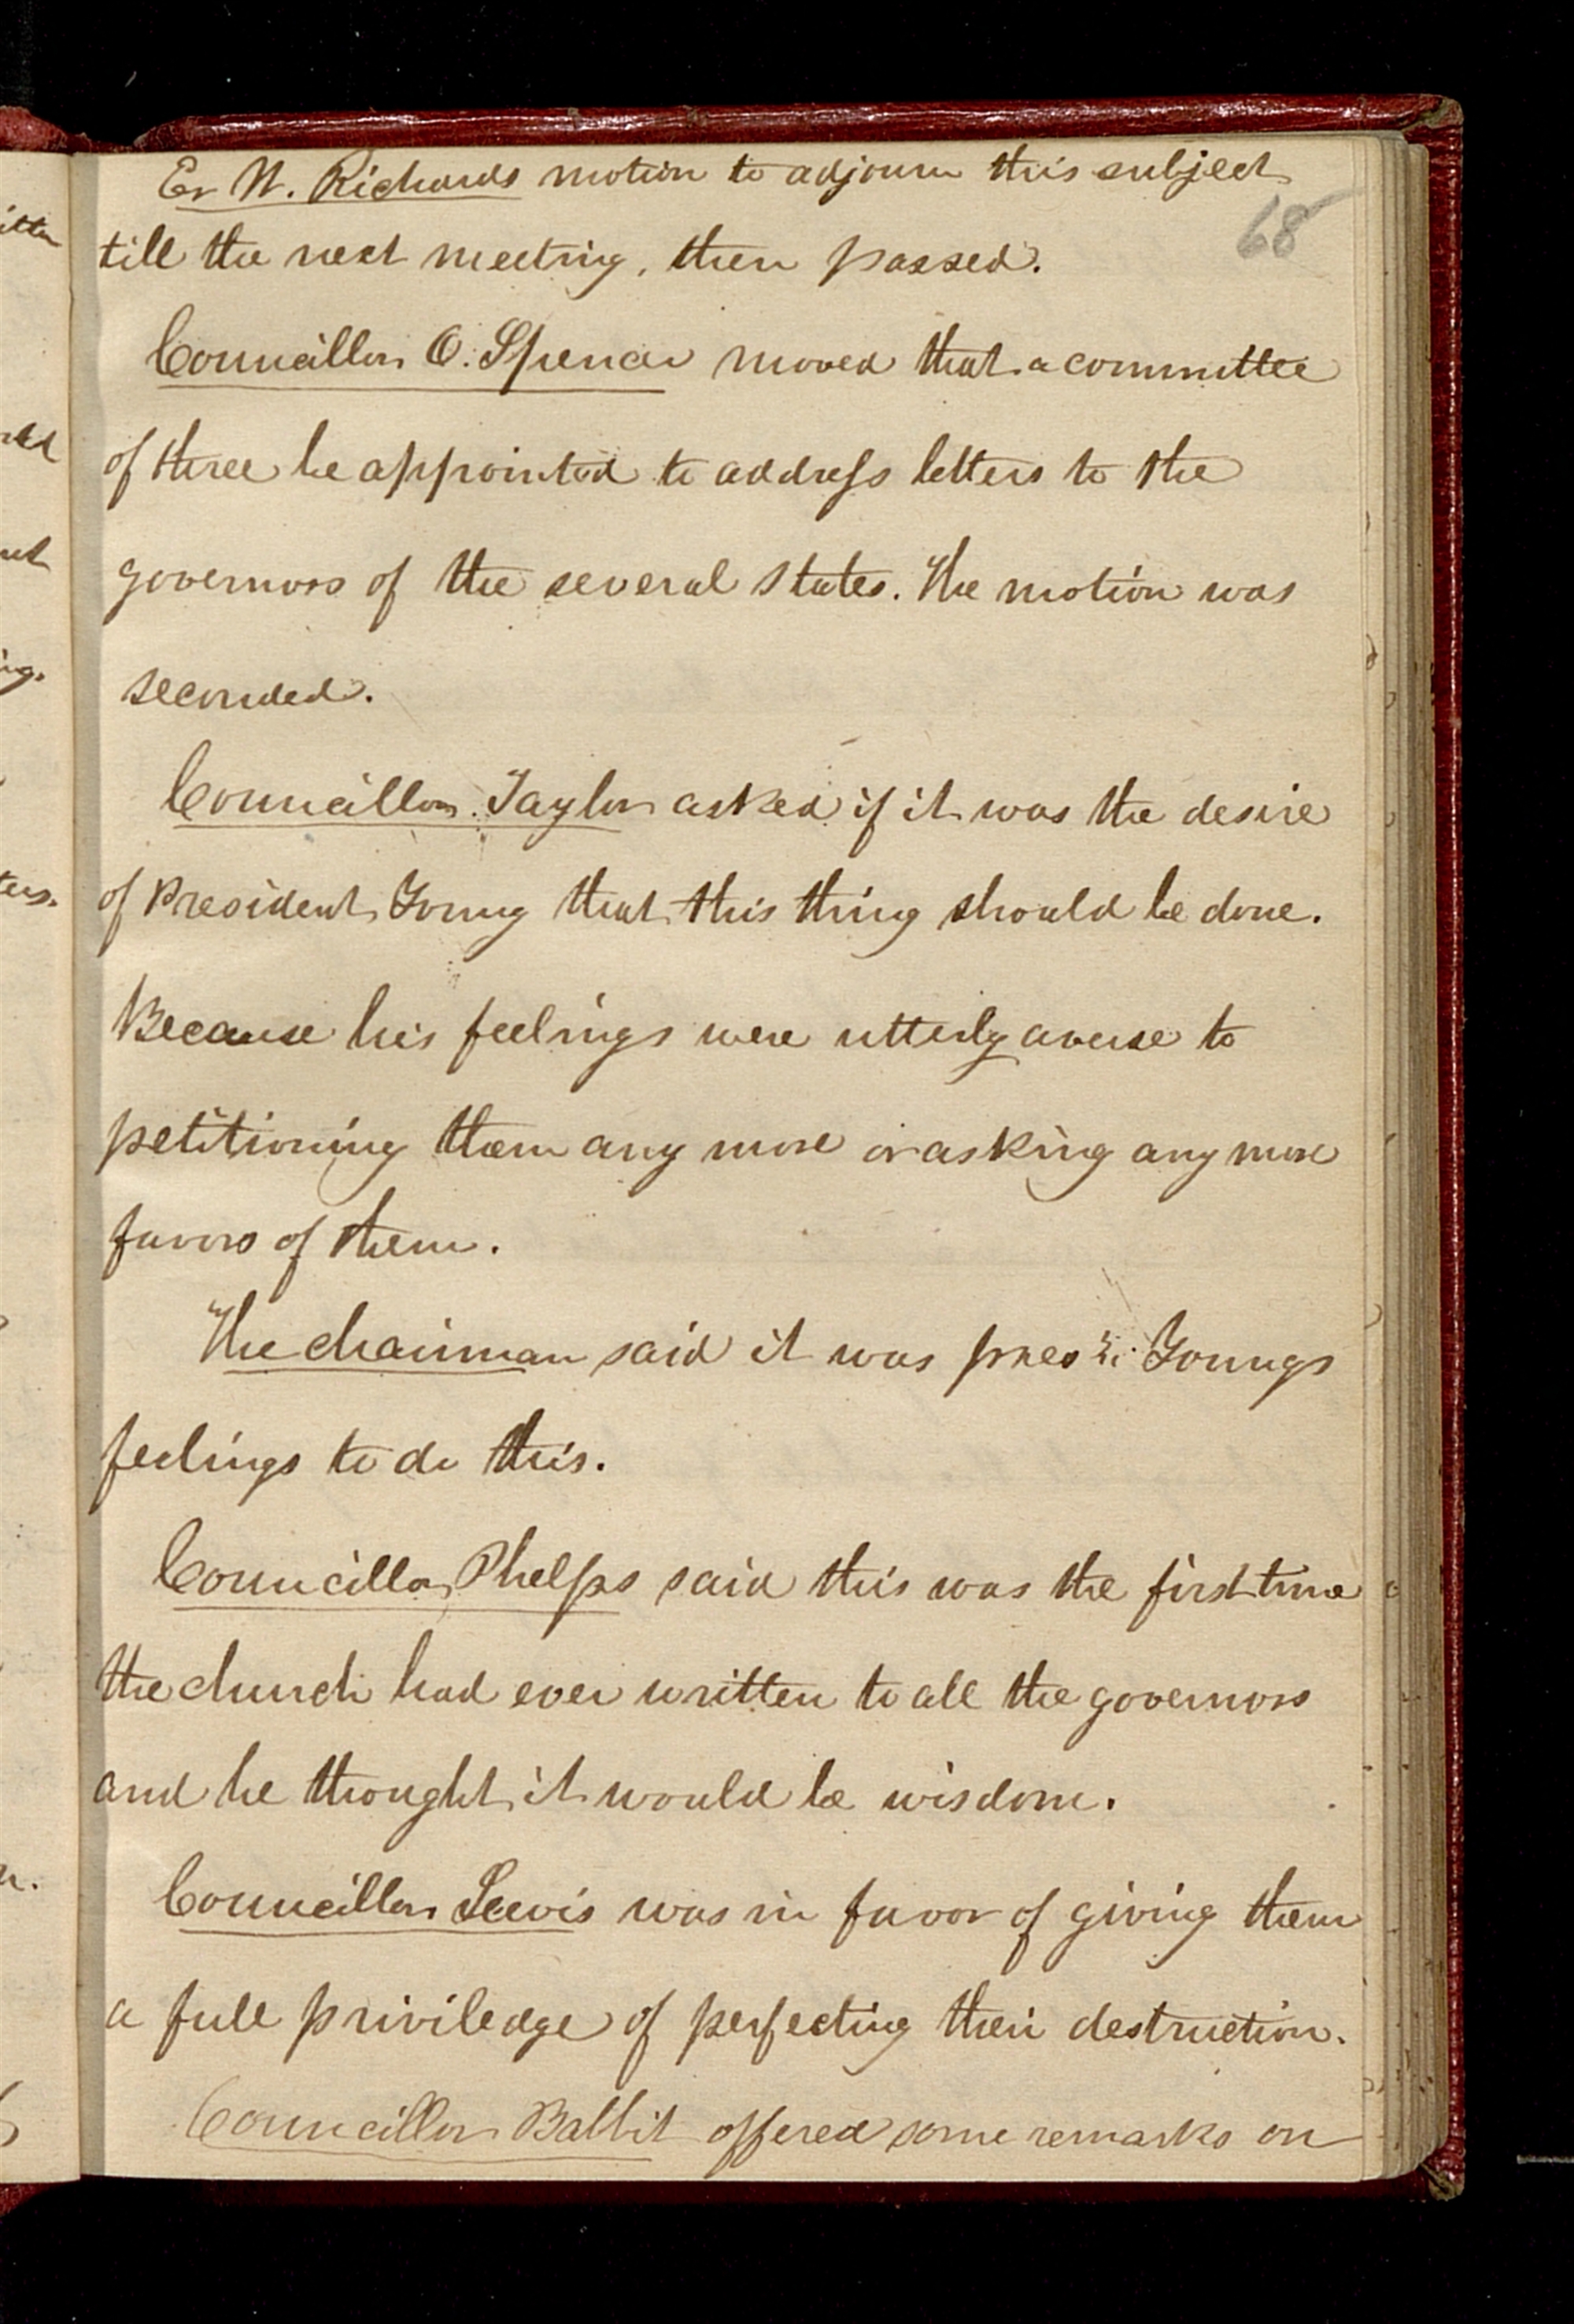 Er W. Richards motion to adjourn this subject
68
till the next meeting, then passed.
Councillor O. Spencer moved that a committee
of three be appointed to address letters to the
governors of the several states. The motion was
seconded.
Councillor Taylor asked if it was the desire
of President Young that this thing should be done.
Because his feelings were utterly averse to
petitioning them any more or asking any more
favors of them.
The chairman said it was pres Youngs
feelings to do this.
Councillor Phelps said this was the first time
the church had ever written to all the governors
and he thought it would be wisdom.
Councillor Lewis was in favor of giving them
a full priviledge of perfecting their destruction.
Councillor Babbit offered some remarks on